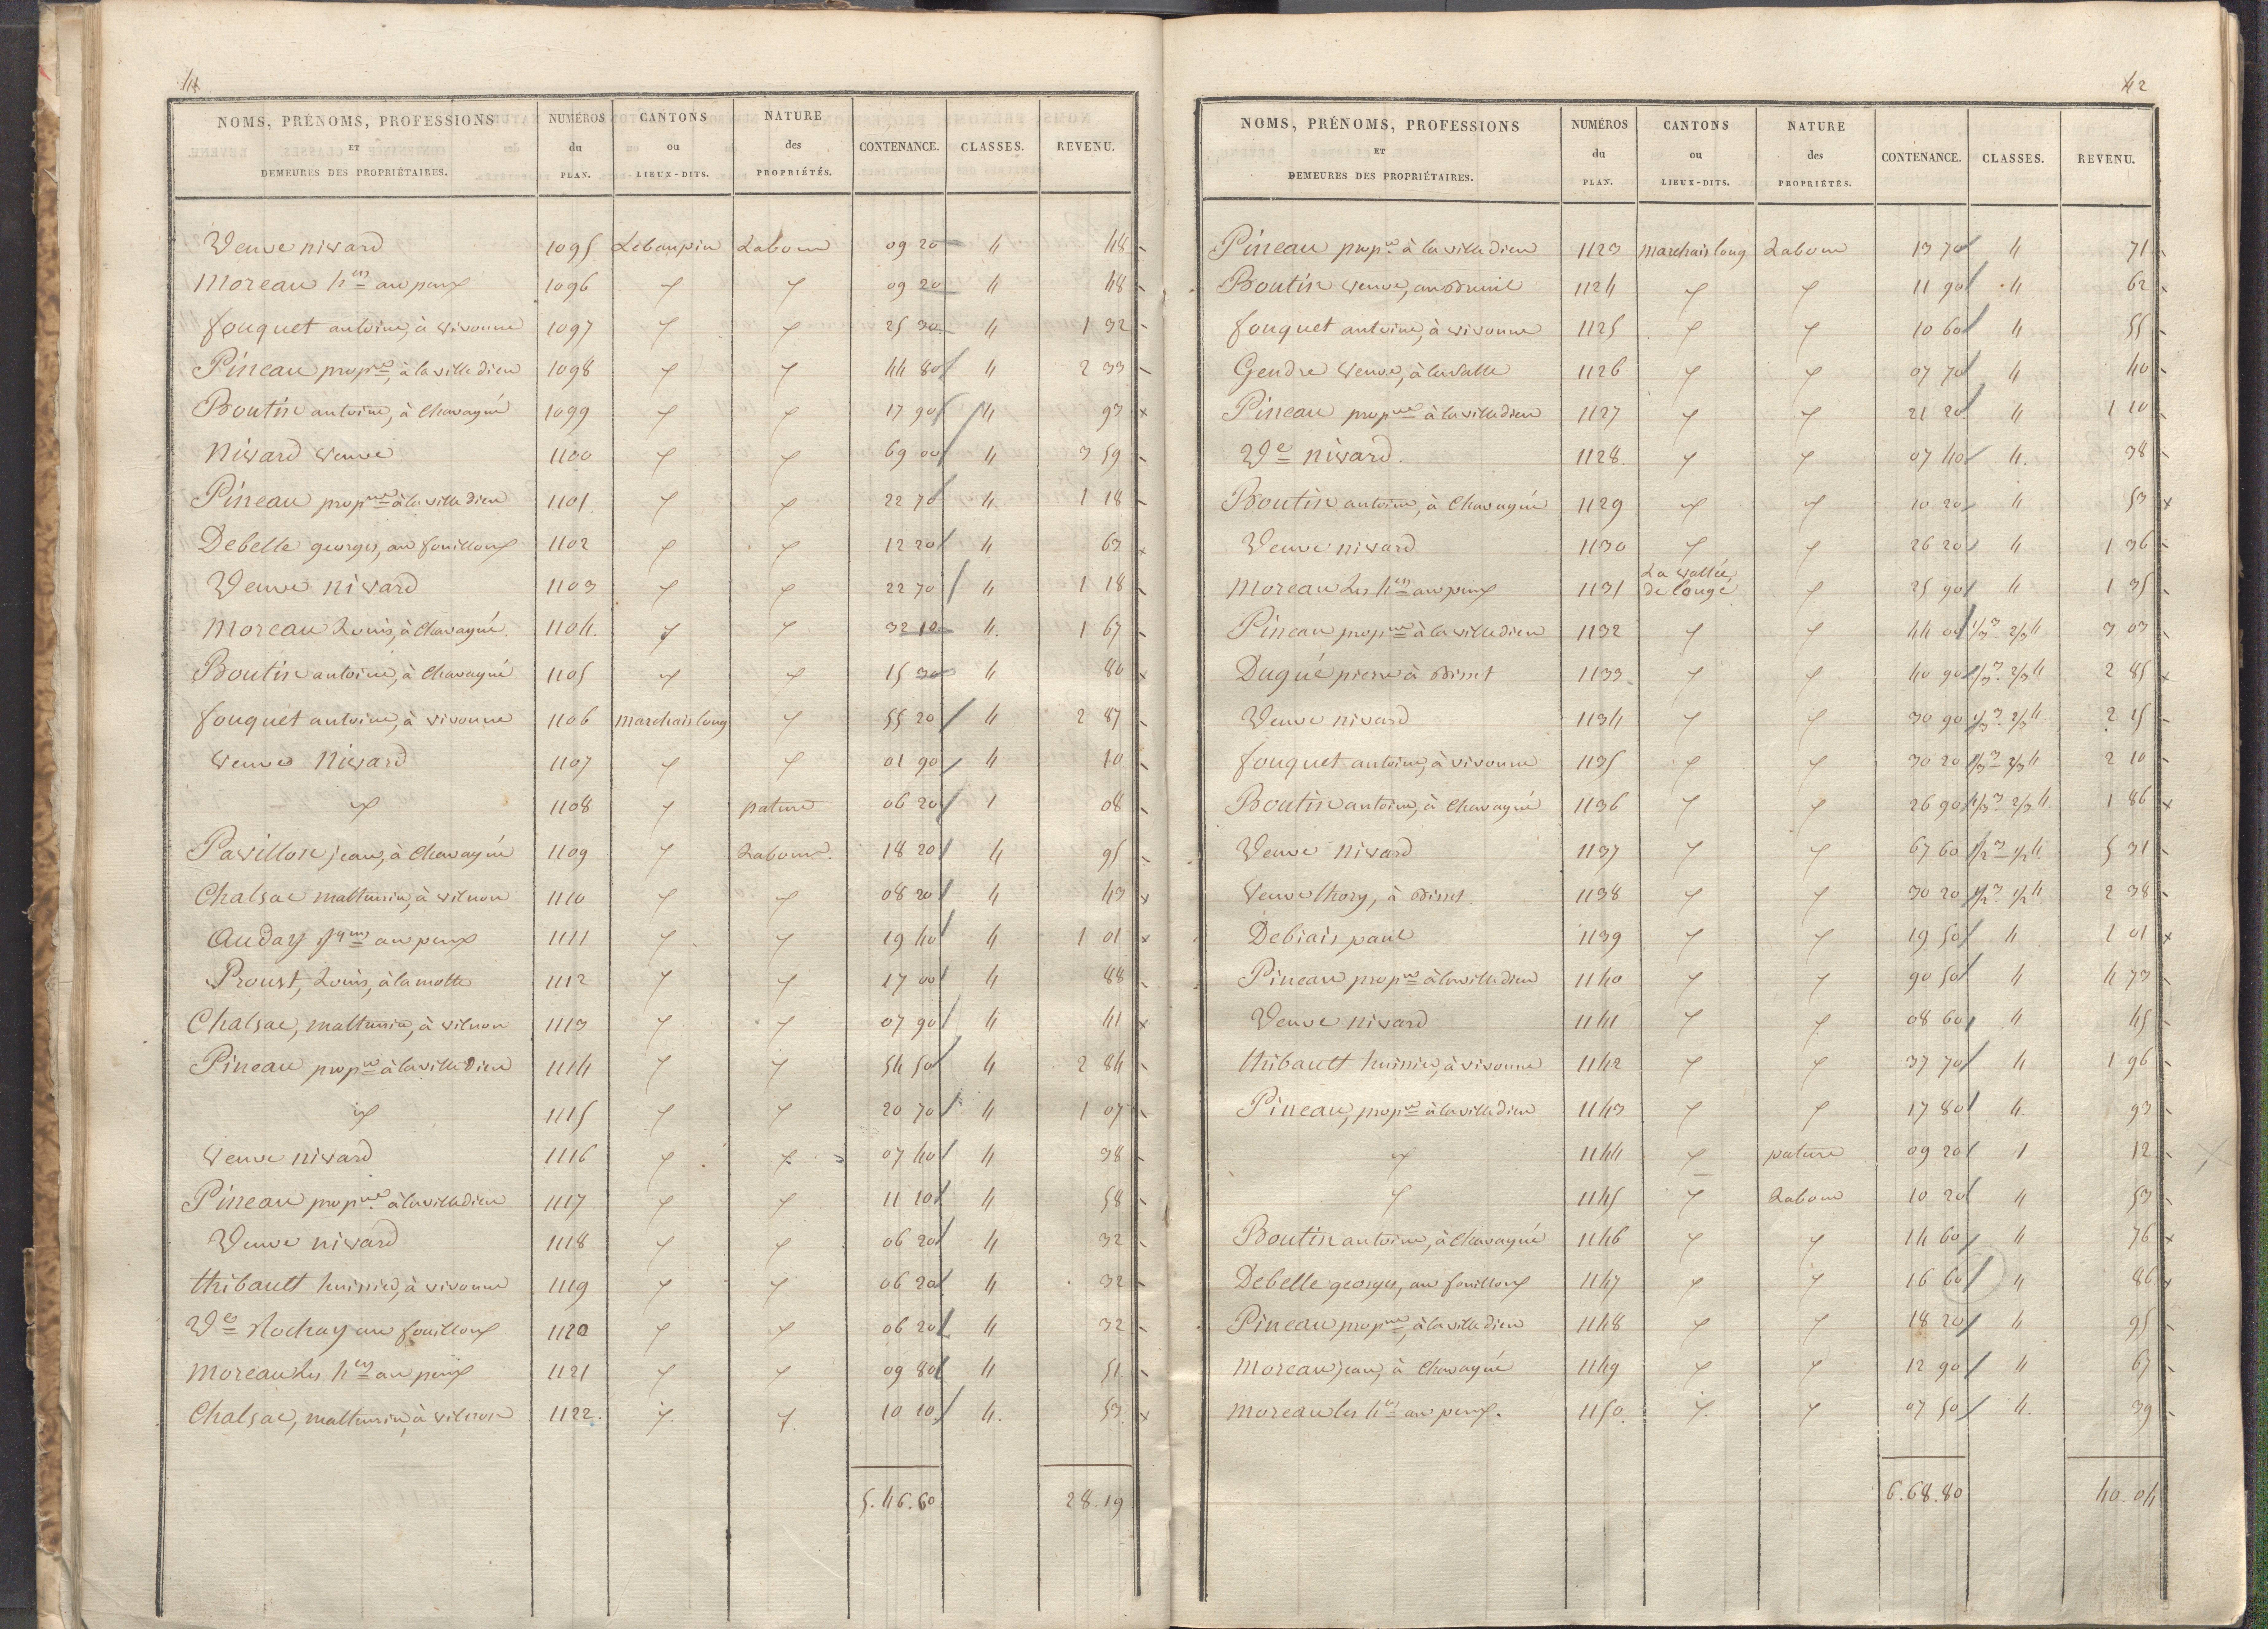 41
NOMS, PRÉNOMS, PROFESSIONS ET DEMEURES DES PROPRIÉTAIRES. NUMÉROS du PLAN. CANTONS ou LIEUX-DITS. NATURE des PROPRIÉTÉS. CONTENANCE. CLASSES. REVENU.
Veuve nivard 1095 Lebaupin Labour 09 20 4 48
Moreau h.ers au peux 1096 " " 09 20 4 48
fouquet antoine, à vivonne 1097 " " 25 30 4 1 32
Pineau prop.re, à la villedieu 1098 " " 44 80 4 2 33
Boutin antoine, à Chavagné 1099 " " 17 90 4 93
Nivard veuve 1100 " " 69 00 4 3 59
Pineau prop.re à la villedieu 1101 " " 22 70 4 1 18
Debelle georges, au fouilloux 1102 " " 12 20 4 63
Veuve nivard 1103 " " 22 70 4 1 18
Moreau Louis, à Chavagné 1104 " " 32 10 4 1 67
Boutin antoine, à Chavagné 1105 " " 15 30 4 80
fouquet antoine, à vivonne 1106 marchais long " 55 20 4 2 87
Veuve Nivard 1107 " " 01 90 4 10
" 1108 " pature 06 20 1 08
Pavillon jean, à Chavagné 1109 " Labour 18 20 4 95
Chalsac mathurin, à vilnon 1110 " " 08 20 4 43
Auday jques au peux 1111 " " 19 40 4 1 01
Proust, Louis, à la motte 1112 " " 17 00 4 88
Chalsac, mathurin, à vilnon 1113 " " 07 90 4 41
Pineau prop.re à la villedieu 1114 " " 54 50 4 2 84
" 1115 " " 20 70 4 1 07
Veuve nivard 1116 " " 07 40 4 38
Pineau prop.re à la villedieu 1117 " " 11 10 4 58
Veuve nivard 1118 " " 06 20 4 32
thibault huissier, à vivonne 1119 " " 06 20 4 32
Ve Rochay au fouilloux 1120 " " 06 20 4 32
Moreau les h.ers au peux 1121 " " 09 80 4 51
Chalsac, mathurin, à vilnon 1122 " " 10 10 4 53
5.46.60 28.19
42
NOMS, PRÉNOMS, PROFESSIONS ET DEMEURES DES PROPRIÉTAIRES. NUMÉROS du PLAN. CANTONS ou LIEUX-DITS. NATURE des PROPRIÉTÉS. CONTENANCE. CLASSES. REVENU.
Pineau prop.re à la villedieu 1123 marchais long Labour 13 70 4 71
Boutin veuve, au 1124 " " 11 90 4 62
fouquet antoine, à vivonne 1125 " " 10 60 4 55
Gendre veuve, à la 1126 " " 07 70 4 40
Pineau prop.re à la villedieu 1127 " " 21 20 4 1 10
Ve nivard 1128 " " 07 40 4 38
Boutin antoine, à Chavagné 1129 " " 10 20 4 53
Veuve nivard 1130 " " 26 20 4 1 36
Moreau les h.ers au peux 1131 La vallée de longé " 25 90 4 1 35
Pineau prop.re à la villedieu 1132 " " 44 00 1/3 3 2/3 4 3 03
Dugué pierre à 1133 " " 40 90 1/3 3 2/3 4 2 85
Veuve nivard 1134 " " 30 90 1/3 3 2/3 4 2 15
fouquet antoine, à vivonne 1135 " " 30 20 1/3 3 2/3 4 2 10
Boutin antoine, à Chavagné 1136 " " 26 90 1/3 3 2/3 4 1 86
Veuve nivard 1137 " " 67 60 1/2 3 1/2 4 5 31
Veuve thory, à 1138 " " 30 20 1/2 3 1/2 4 2 38
Debiais paul 1139 " " 19 50 4 1 01
Pineau prop.re à la villedieu 1140 " " 90 50 4 4 73
Veuve nivard 1141 " " 08 60 4 45
thibault huissier, à vivonne 1142 " " 37 70 4 1 96
Pineau, prop.re à la villedieu 1143 " " 17 80 4 93
" 1144 " pature 09 20 1 12
" 1145 " Labour 10 20 4 53
Boutin antoine, à Chavagné 1146 " " 14 60 4 76
Debelle georges, au fouilloux 1147 " " 16 60 4 86
Pineau prop.re, à la villedieu 1148 " " 18 20 4 95
Moreau jean, à Chavagné 1149 " " 12 90 4 67
moreau les h.ers au peux. 1150 " " 07 50 4 39
6.68.80 40.04